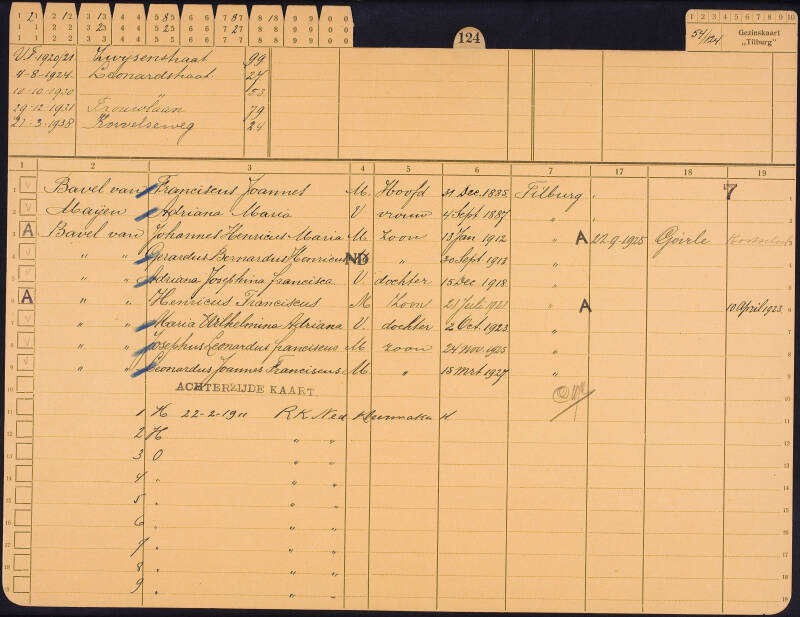 124
54/124
Gezinskaart
"Tilburg"
V.T. 1920/21 Zwijsenstraat 99
4-8-1924 Leonardstraat 27
10-10-1930 53
29-12-1931 Trouwlaan 79
21-3-1938 Korvelseweg 24
1 2 3 4 5 6 7 17 18 19
1 V Bavel van Franciscus Joannes M. Hoofd 31 Dec. 1885 Tilburg 7 1
2 V Maijen Adriana Maria V. vrouw 4 Sept 1887 " 2
3 A Bavel van Johannes Henricus Maria M. Zoon 13 Jan. 1912 " A 22-9-1925 Goirle 3
4 V " " Gerardus Bernardus Henricus ND " 30 Sept 1913 " 4
5 V " " Adriana Josephina francisca V. dochter 15 Dec. 1918 " 5
6 A " " Henricus Franciscus M Zoon 21 Juli 1921 " A 10 April 1923 6
7 V " " Maria Wilhelmina Adriana V. dochter 2 Oct. 1923 " 7
8 V " " Josephus Leonardus franciscus M. zoon 24 Nov. 1925 " 8
9 V " " Leonardus Joannes Franciscus M. " 15 Mrt 1927 " 9
10 ACHTERZIJDE KAART 10
11 1 H 22-2-1911 R.K. Ned. 11
12 2 H " " 12
13 3 O " " 13
14 4 " " " 14
15 5 " " " 15
16 6 " " " 16
17 7 " " " 17
18 8 " " " 18
19 9 " " " 19